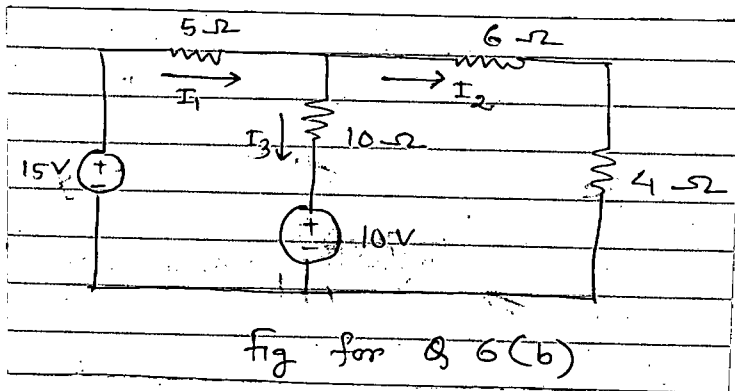 5 Ω
6 Ω
I1
I2
I3
10 Ω
15V
+
-
4 Ω
+
-
10V
Fig for Q 6(b)